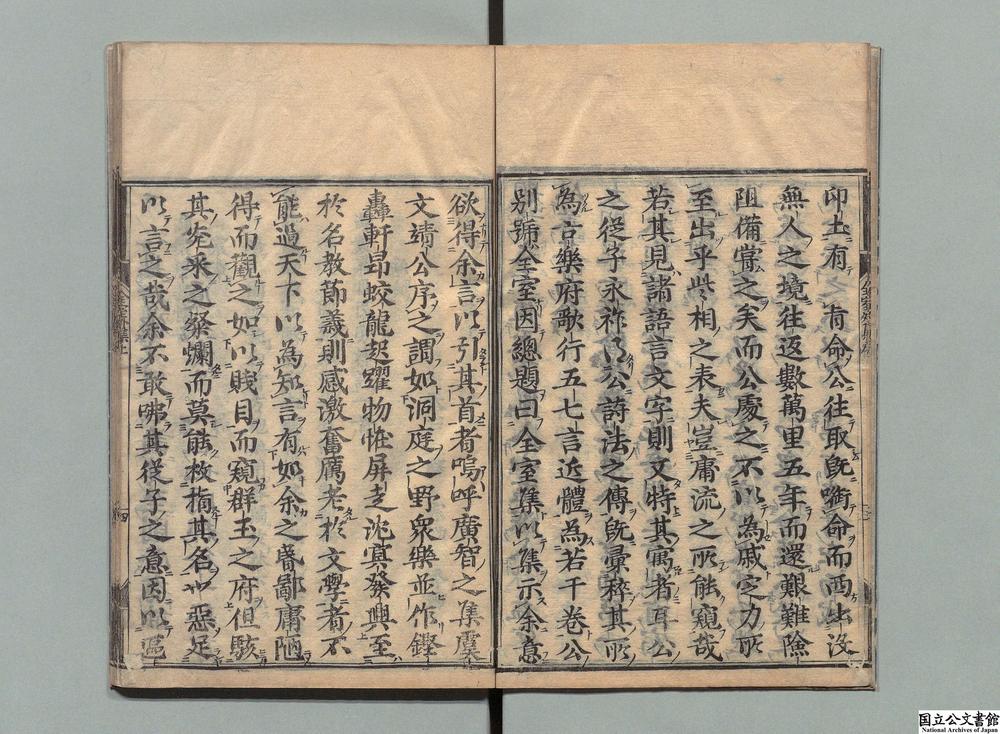 印土有旨命公往取既啣命而西出没
無人之境往返數萬里五年而還艱難險
阻備嘗之矣而公處之不以為戚定力所
至出乎世相之表夫豈庸流之所能窺哉
若其見諸語言文字則又特其寓者耳公
之從子永祚得公詩法之傳既彙稡其所
為古樂府歌行五七言近體為若干卷公
別號全室因總題曰全室集以集示余意
欲得余言以引其首者嗚呼廣智之集虞
文靖公序之謂如洞庭之野衆樂並作鏗
轟軒昻蛟龍起躍物恠屏走沈寘發興至
於名教節義則感激奮厲老於文學者不
能過天下以為知言有如余之昏鄙庸陋
得而觀之如以賤目而窺群玉之府但駭
其光采之粲爛而莫能枚指其名也悪足
以言之哉余不敢咈其從子之意因以
四
国立公文書館
National Archives of Japan